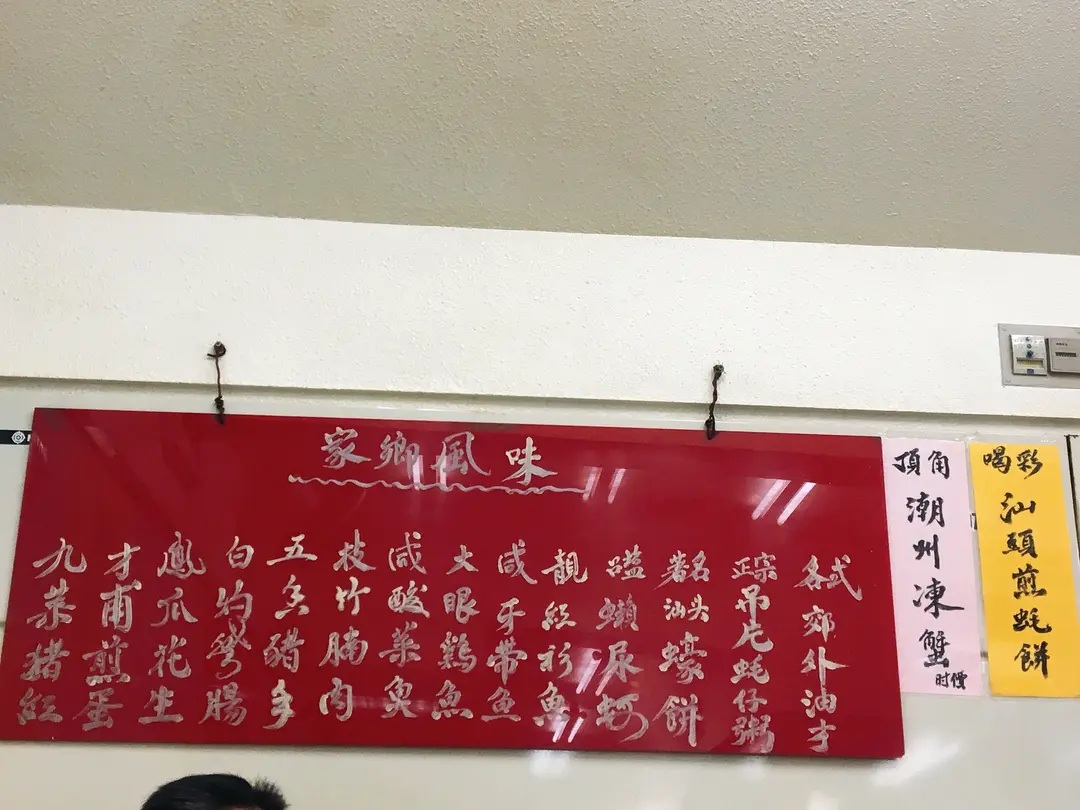 家鄉風味
各式郊外油才
正宗吊片蚝仔粥
著名汕头蠔餅
瀨尿
靚紅衫魚
咸牙帶鱼
大眼鷄魚
咸酸菜魚
枝竹腩肉
五香豬手
白灼彎腸
鳳爪花生
才甫煎蛋
九菜猪紅
頂角
潮州凍蟹
时價
喝彩
汕頭煎蚝餅